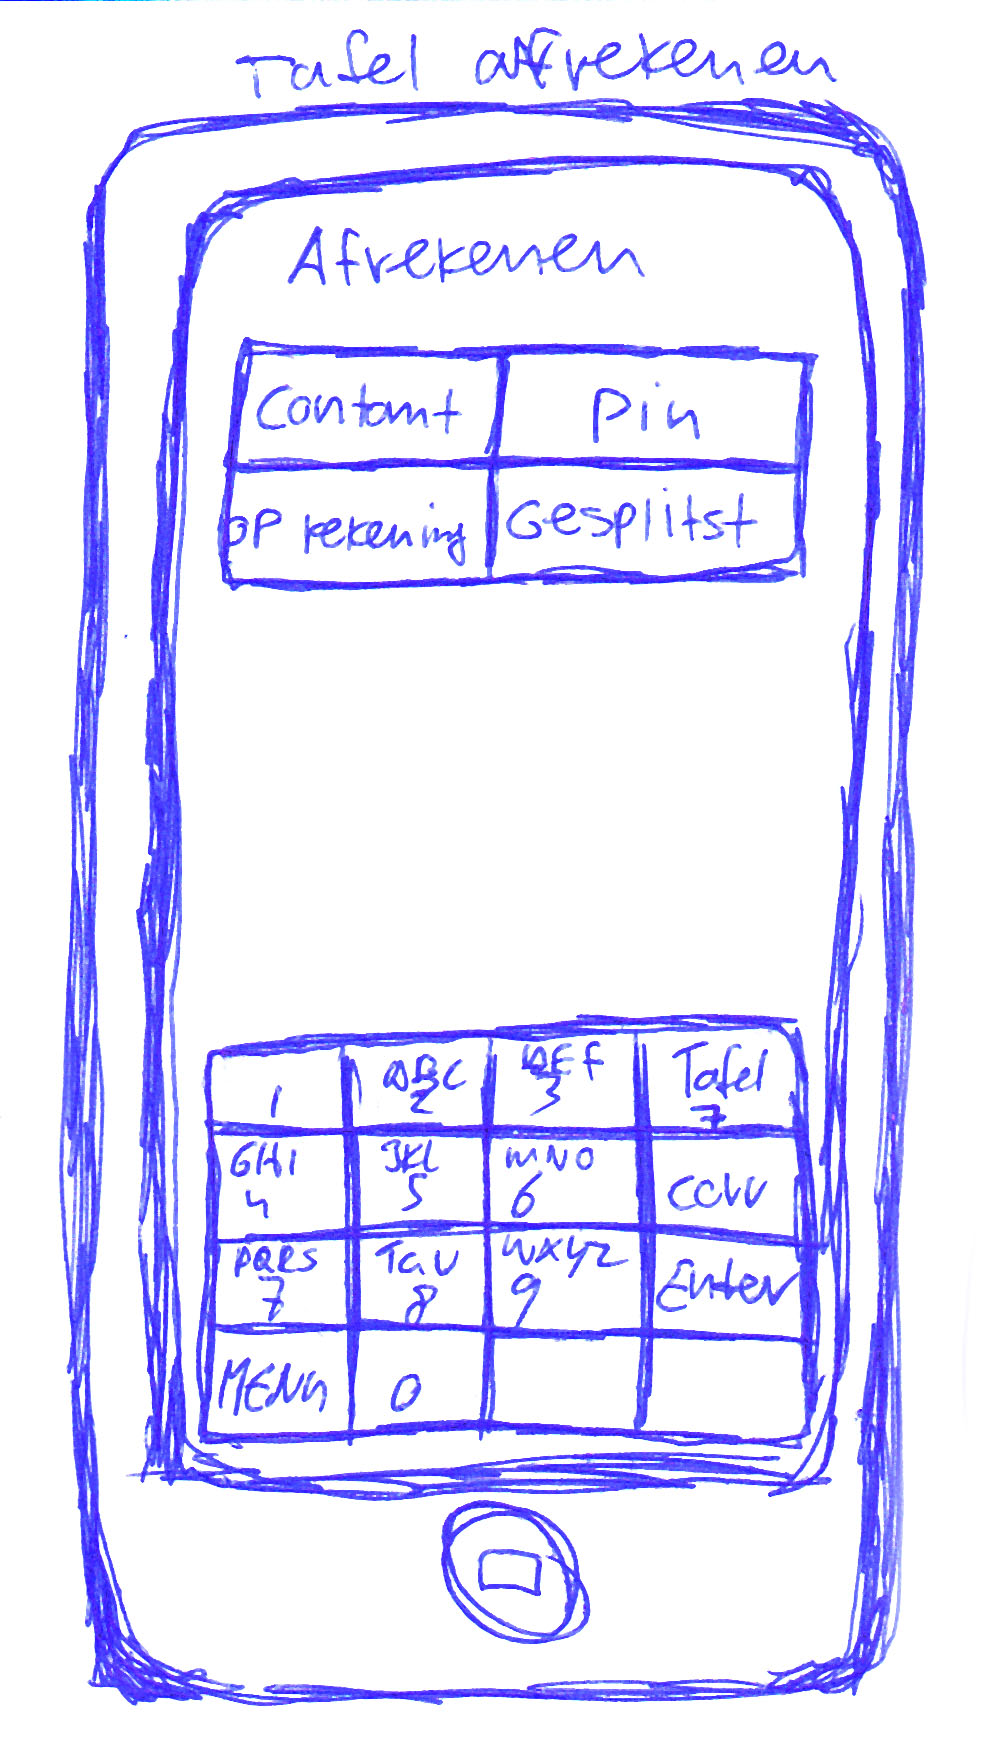 Tafel afrekenen
Afrekenen
Contant Pin
op rekening Gesplitst
ABC DEF Tafel
1 2 3 7
GHI JKL MNO
4 5 6 corr
PQRS TUV WXYZ
7 8 9 Enter
MENU 0